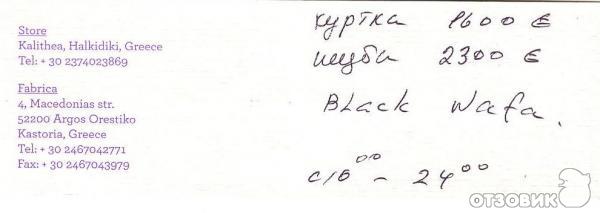 Store
Kalithea, Halkidiki, Greece
Tel: + 30 2374023869
Fabrica
4, Macedonias str.
52200 Argos Orestiko
Kastoria, Greece
Tel: + 30 2467042771
Fax: + 30 2467043979
куртка 1600 €
шуба 2300 €
BLack Nafa.
с 10⁰⁰ - 24⁰⁰
ОТЗОВИК